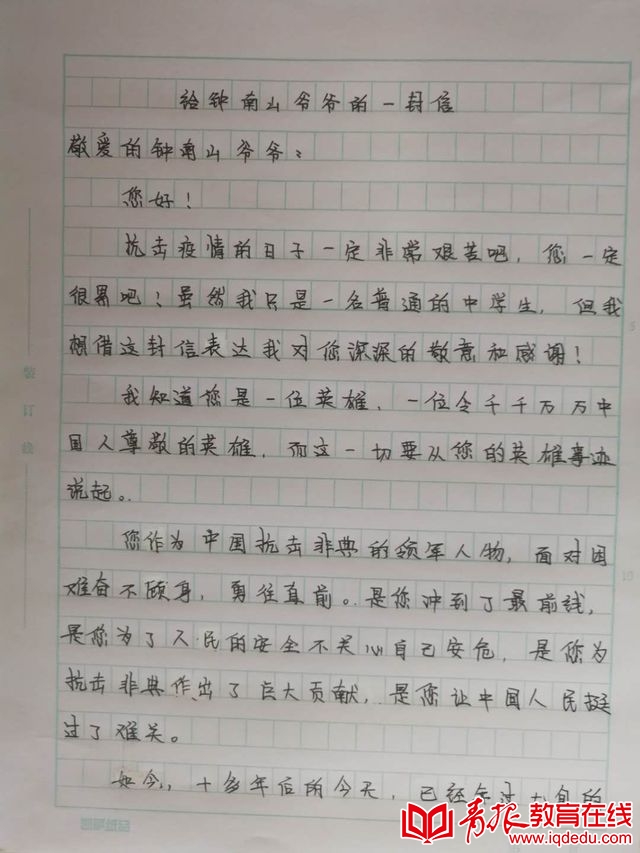 给钟南山爷爷的一封信
敬爱的钟南山爷爷：
您好！
抗击疫情的日子一定非常艰苦吧，您一定
很累吧！虽然我只是一名普通的中学生，但我
想借这封信表达我对您深深的敬意和感谢！
我知道您是一位英雄，一位令千千万万中
国人尊敬的英雄，而这一切要从您的英雄事迹
说起。
您作为中国抗击非典的领军人物，面对困
难奋不顾身，勇往直前。是您冲到了最前线，
是您为了人民的安全不关心自己安危，是您为
抗击非典作出了巨大贡献，是您让中国人民挺
过了难关。
如今，十多年后的今天，已经年过九旬的
装订线
5
10
青报教育在线
www.iqdedu.com